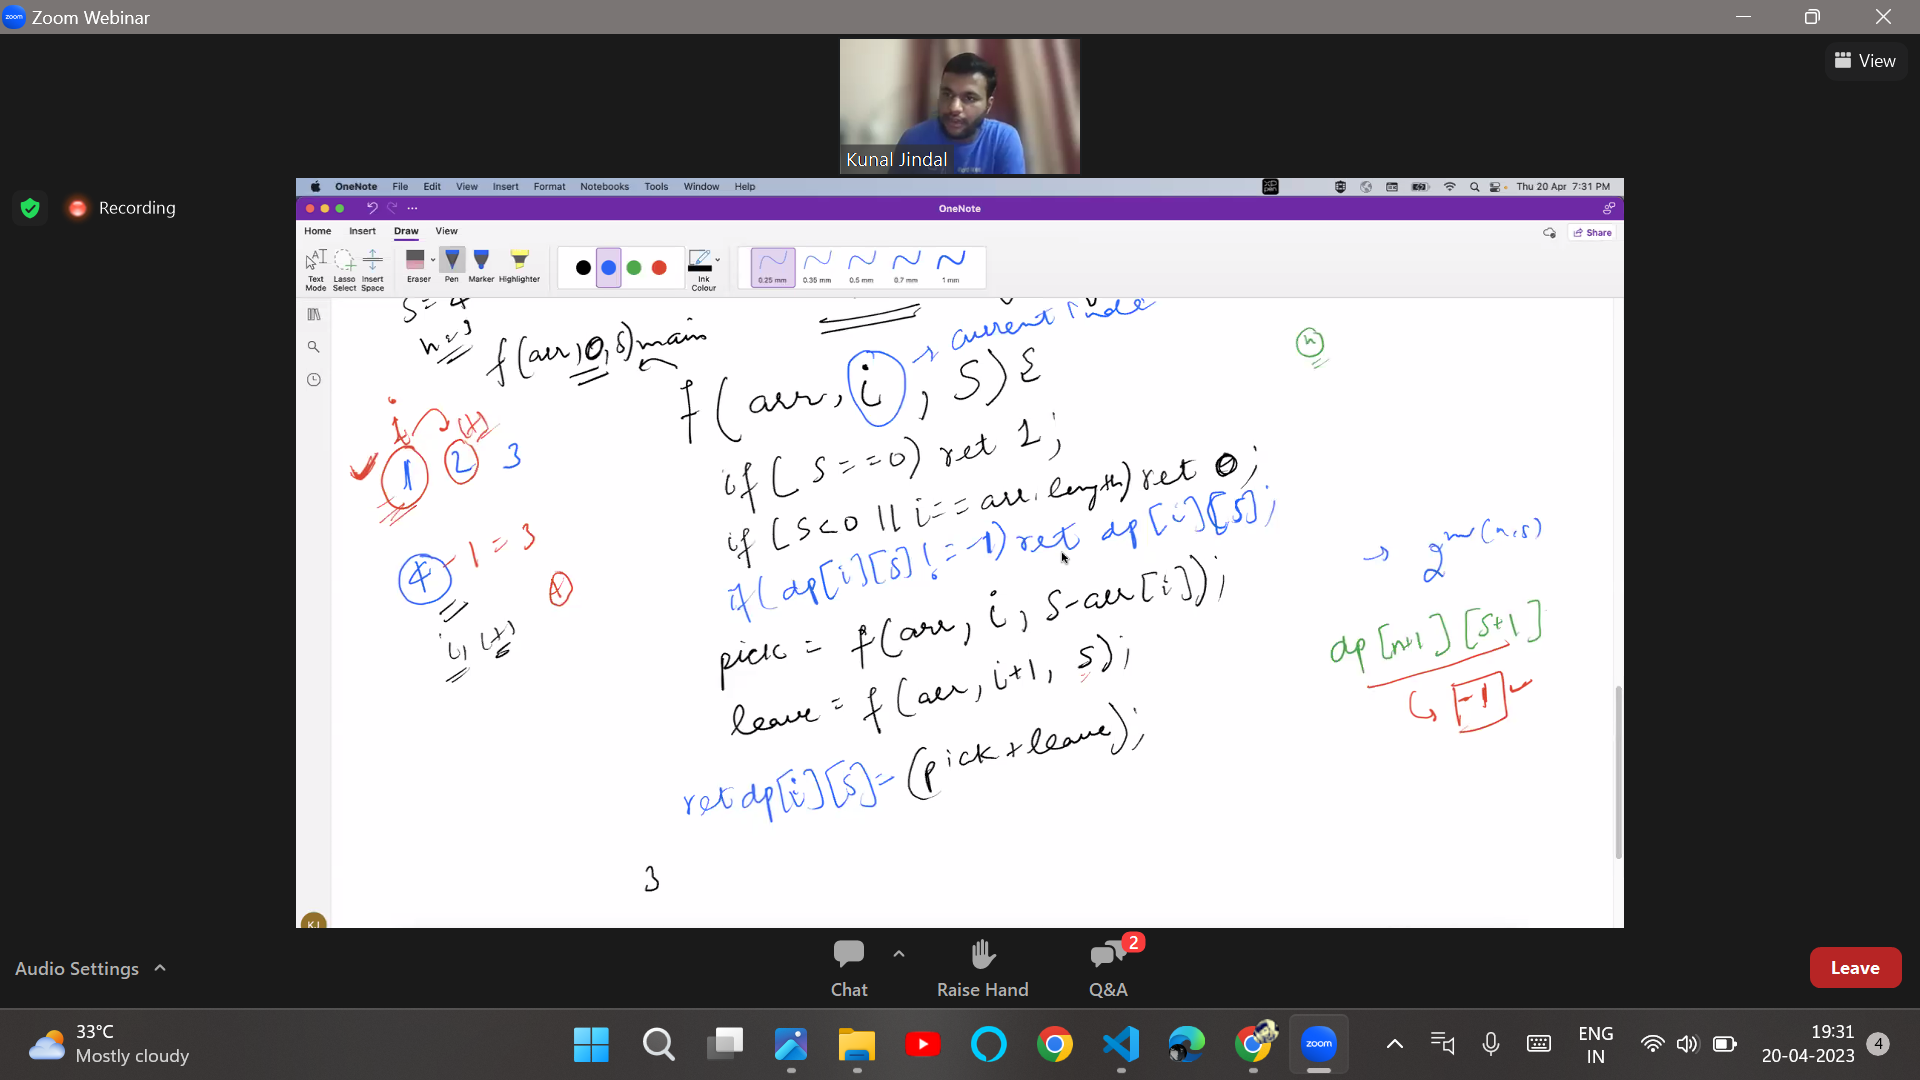 Zoom Webinar
View
Kunal Jindal
Recording
OneNote File Edit View Insert Format Notebooks Tools Window Help
Thu 20 Apr 7:31 PM
OneNote
Home Insert Draw View
Share
Text Mode
Lasso Select
Insert Space
Eraser
Pen
Marker
Highlighter
Ink Colour
0.25 mm
0.35 mm
0.5 mm
0.7 mm
1 mm
S = 4
n = 3
f(arr, 0, S) main
current inde
f(arr, i, S) {
n
i
1 2 3
if (S==0) ret 1;
if (S<0 || i==arr.length) ret 0;
if (dp[i][S] != -1) ret dp[i][S];
4 - 1 = 3
dp[n+1][S+1]
-1
pick = f(arr, i, S-arr[i]);
leave = f(arr, i+1, S);
ret dp[i][S] = (pick + leave);
3
KJ
Audio Settings
Chat
Raise Hand
2
Q&A
Leave
33°C
Mostly cloudy
zoom
ENG
IN
19:31
20-04-2023
4